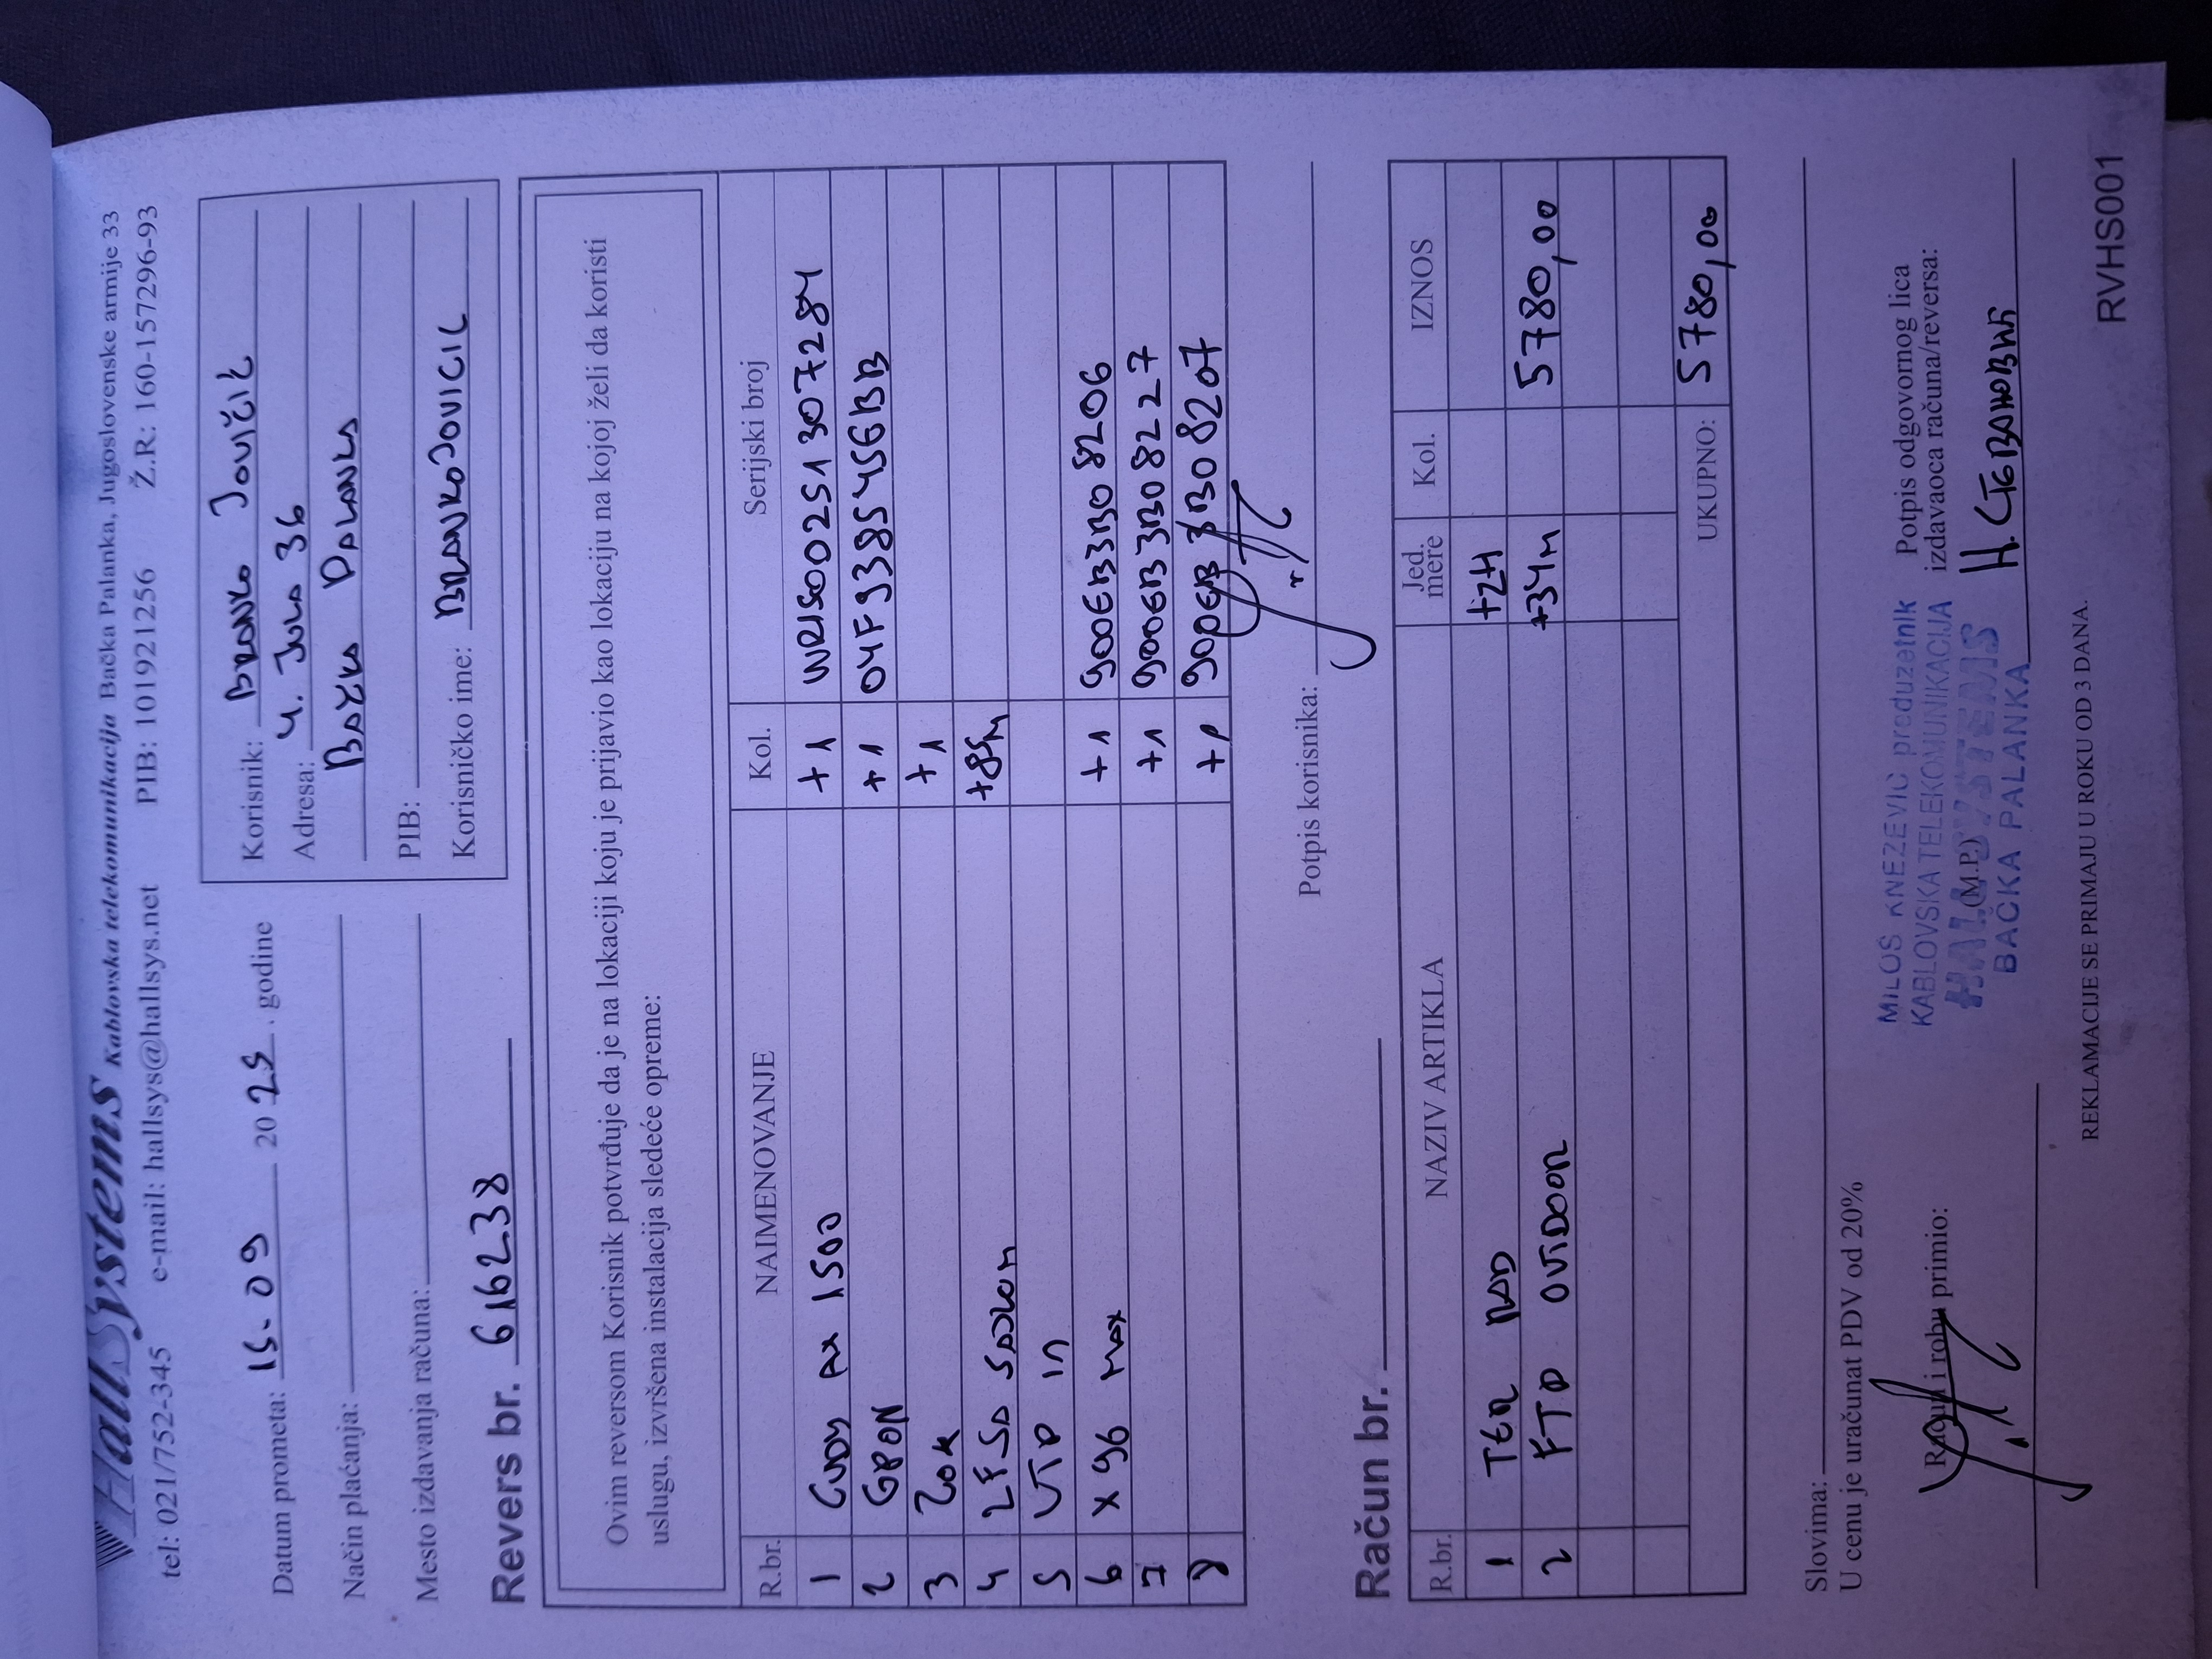 HallSystems Kablovska telekomunikacija Bačka Palanka, Jugoslovenske armije 33
tel: 021/752-345 e-mail: hallsys@hallsys.net PIB: 101921256 Ž.R: 160-157296-93
Datum prometa: 15.09 2025. godine
Način plaćanja:
Mesto izdavanja računa:
Korisnik: BRANKO JOVIČIĆ
Adresa: 4. JULA 36
BAČKA PALANKA
PIB:
Korisničko ime: BRANKOJOVICIC
Revers br. 616238
Ovim reversom Korisnik potvrđuje da je na lokaciji koju je prijavio kao lokaciju na kojoj želi da koristi
uslugu, izvršena instalacija sledeće opreme:
R.br. NAIMENOVANJE Kol. Serijski broj
1 CUDY AX 1500 +1 WR1500251307284
2 GPON +1 04F93385456BB
3 ZOK +1
4 2F SD +85m
5 UTP IN
6 X96 MAX +1 900EB3B08206
7 +1 900EB3B08227
8 +1 900EB3B08207
Potpis korisnika:
Račun br.
R.br. NAZIV ARTIKLA Jed. mere Kol. IZNOS
1 TER RAD +2H
2 FTP OUTDOOR +34m 5780,00
UKUPNO: 5780,00
Slovima:
U cenu je uračunat PDV od 20%
Račun i robu primio:
MILOŠ KNEŽEVIĆ preduzetnik
KABLOVSKA TELEKOMUNIKACIJA
(M.P.)
HALL SYSTEMS
BAČKA PALANKA
Potpis odgovornog lica
izdavaoca računa/reversa:
Н. Стевановић
REKLAMACIJE SE PRIMAJU U ROKU OD 3 DANA.
RVHS001